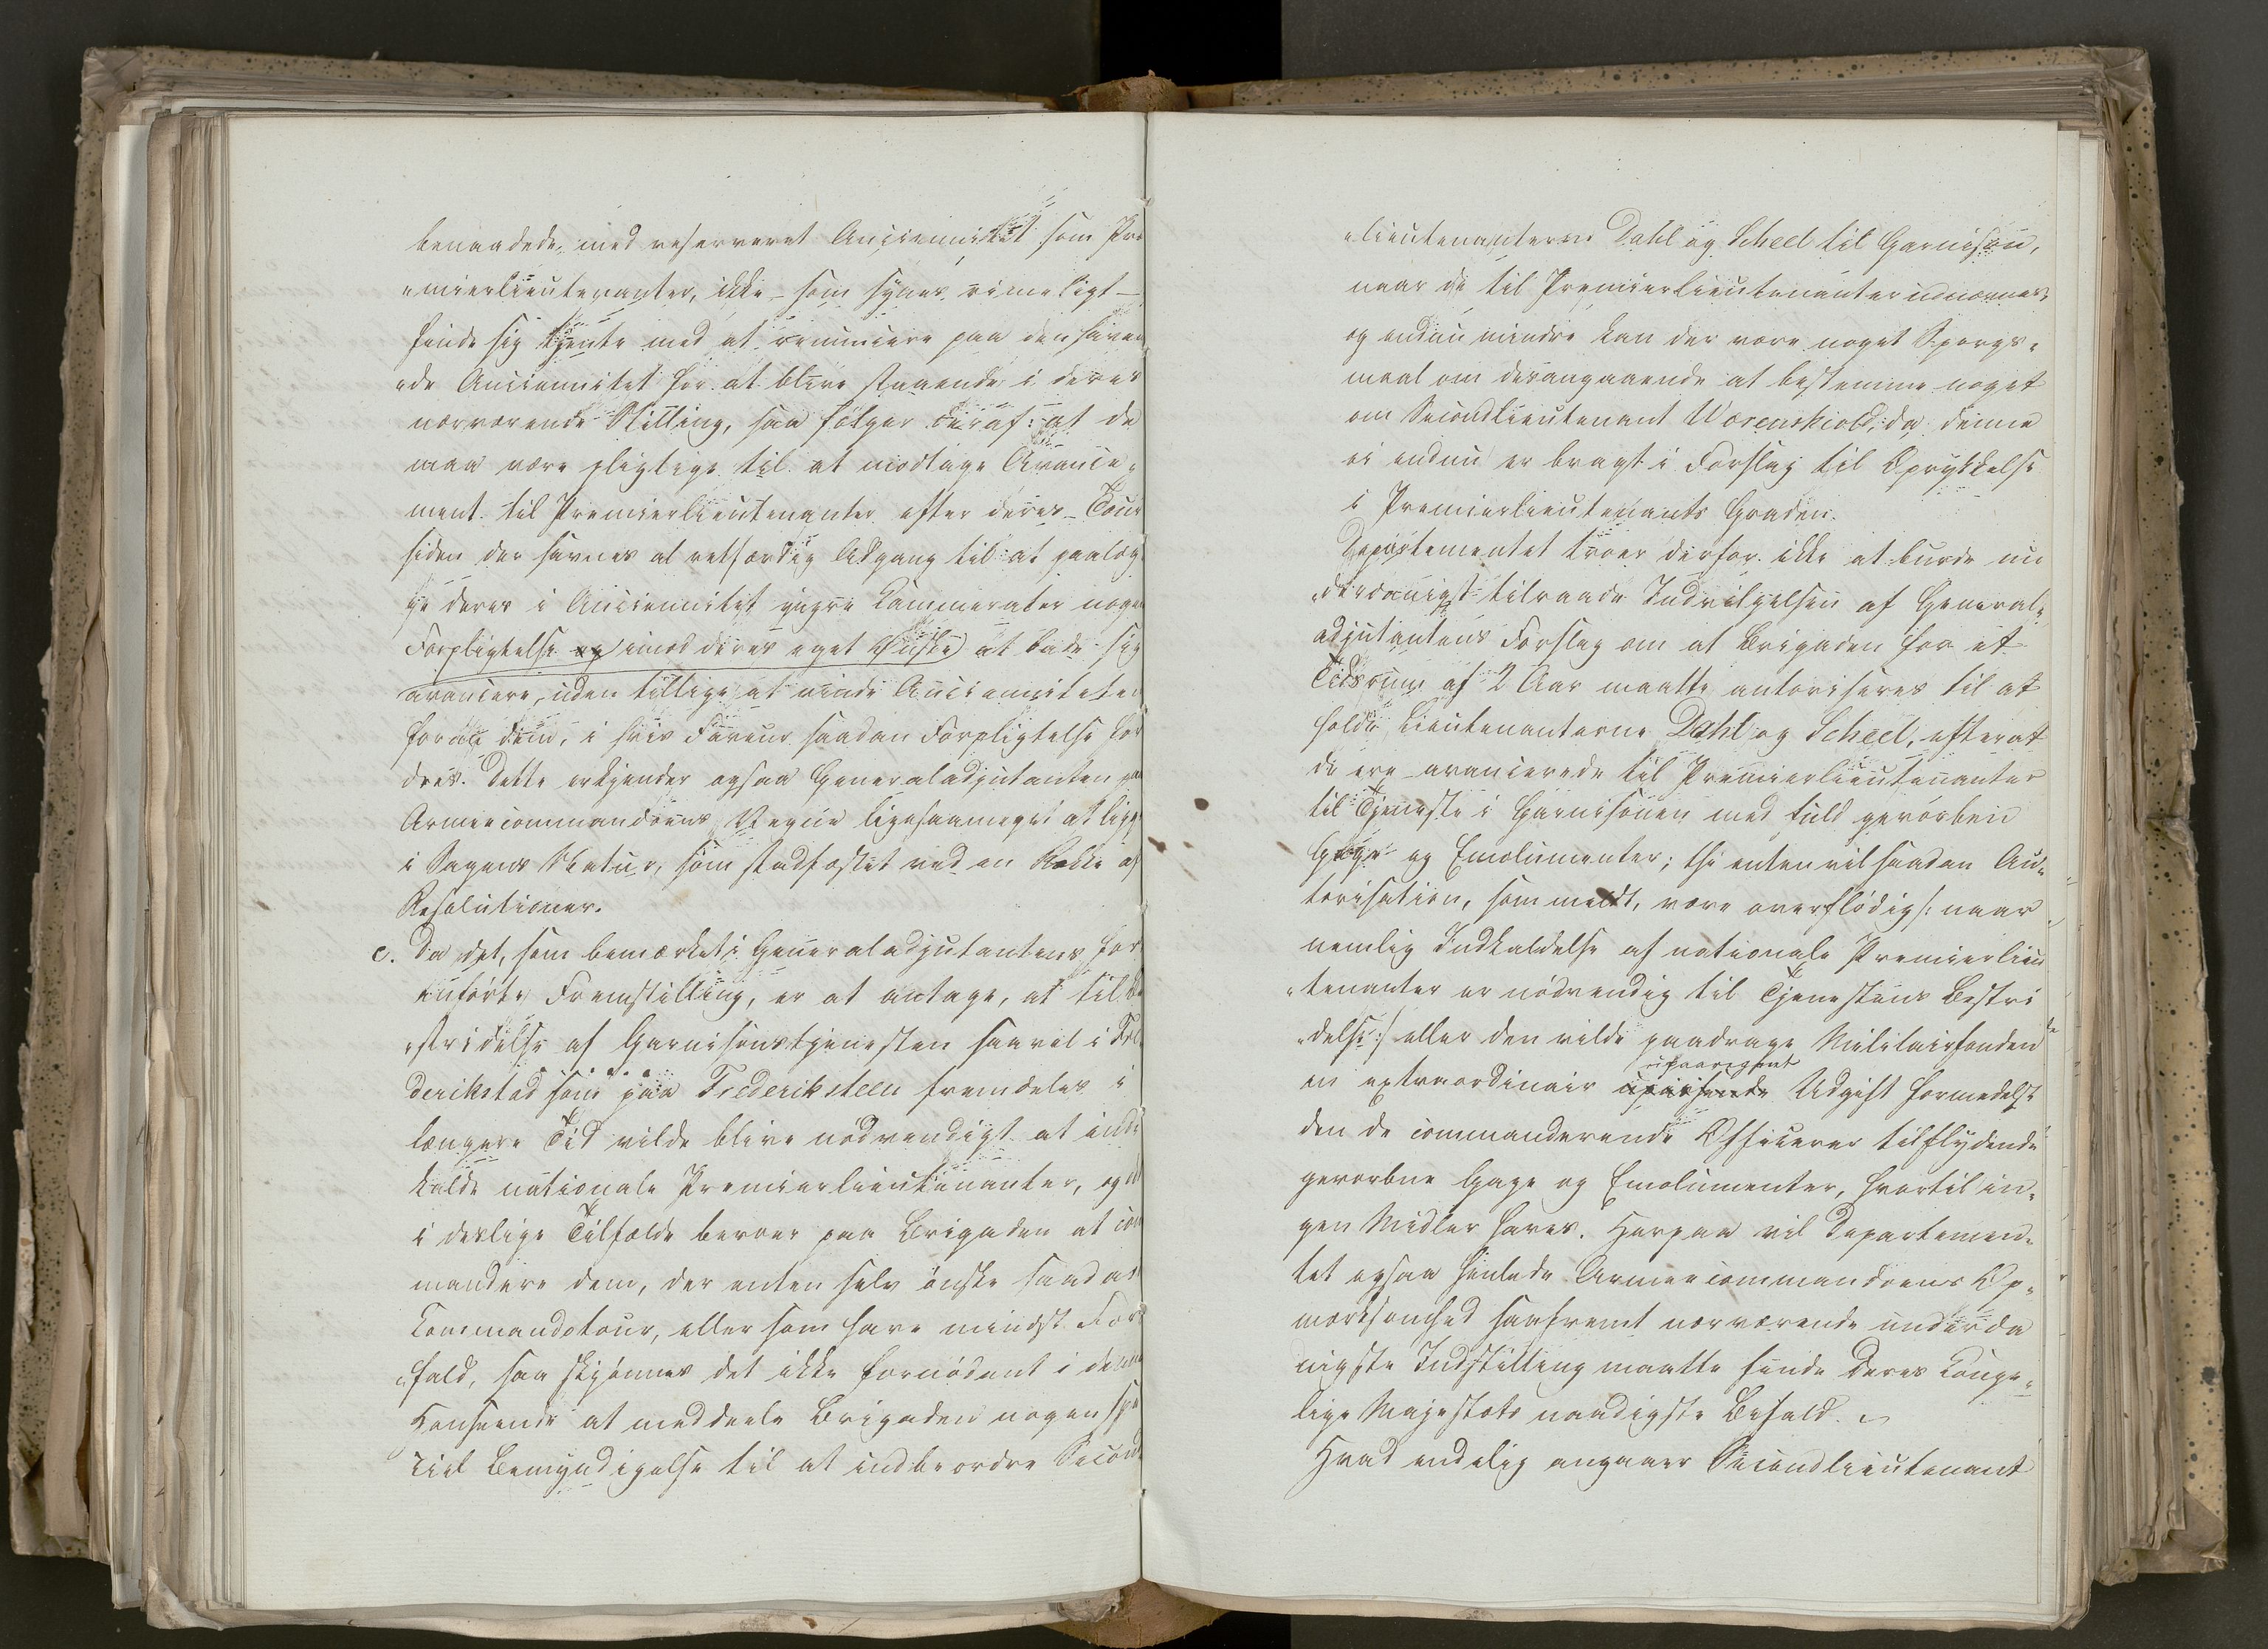 benaadede, med reserveret Anciennitet som Pre
„mierlieutenanter, ikke – som synes rimeligt –
finde sig tjente med at renuncere paa den haved
ede Anciennitet for at blive staaende i deres
nærværende Stilling, saa følger deraf: at de
maa være pligtige til at modtage Avance„
ment til Premierlieutenanter efter deres Tour
siden der savnes al retfærdig Adgang til at paalæg
ge deres i Anciennitet yngre Kammerater nogen
Forpligtelse og imod deres eget Ønske at lade sig
avancere, uden tillige at vinde Ancienniteten
for den, i hvis Faveur saadan Forpligtelse for
dres. Dette erkjender ogsaa Generaladjutanten paa
Armeecommandoens Vegne ligesaameget at ligge
i Sagens Natur, som stadfæstet ved en Række af
Resolutioner.
c. Da det, som bemærket i Generaladjutantens for
anførte Fremstilling, er at antage, at til Be
„stridelse af Garnisonstjenesten saavel i Fre
derikstad som paa Frederiksteen fremdeles i
længere Tid vilde blive nødvendigt at ind
kalde nationale Premierlieutenanter, og det
i deslige Tilfælde beroer paa Brigaden at com
mandere dem, der enten selv ønske saadan
Commandotour, eller som have mindst For
„fald, saa skjønnes det ikke fornødent i denne
Henseende at meddeele Brigaden nogen spe
ciel Bemyndigelse til at indbeordre Second
„lieutenanterne Dahl og Scheel til Garnison,
naar de til Premierlieutenanter udnævnes,
og endnu mindre kan der være noget Spørgs„
maal om desangaaende at bestemme noget
om Secondlieutenant Wærenskiold, da denne
ei endnu er bragt i Forslag til Oprykkelse
i Premierlieutenants Graden.
Departementet troer derfor ikke at burde un
„derdanigst tilraade Indvilgelsen af General„
adjutantens Forslag om at Brigaden for et
Tidsrum af 2 Aar maatte autoriseres til at
holde Lieutenanterne Dahl og Scheel, efterat
de ere avancerede til Premierlieutenanter
til Tjeneste i Garnisonen med fuld gevorben
Gage og Emolumenter; thi enten vil saadan Au„
torisation, som meldt, være overflødig /: naar
nemlig Indkaldelse af nationale Premierlieu
„tenanter er nødvendig til Tjenestens Bestri
„delse :/ eller den vilde paadrage Militairfonden
en extraordinair upaaregnet Udgift formedelst
den de commanderende Officerer tilflydende
gevorbne Gage og Emolumenter, hvortil in„
gen Midler haves. Herpaa vil Departemen„
tet ogsaa henlede Armeecommandoens Op„
mærksomhed saafremt nærværende underda
nigste Indstilling maatte finde Deres Konge„
lige Majestæts naadigste Bifald.
Hvad endelig angaaer Secondlieutenant